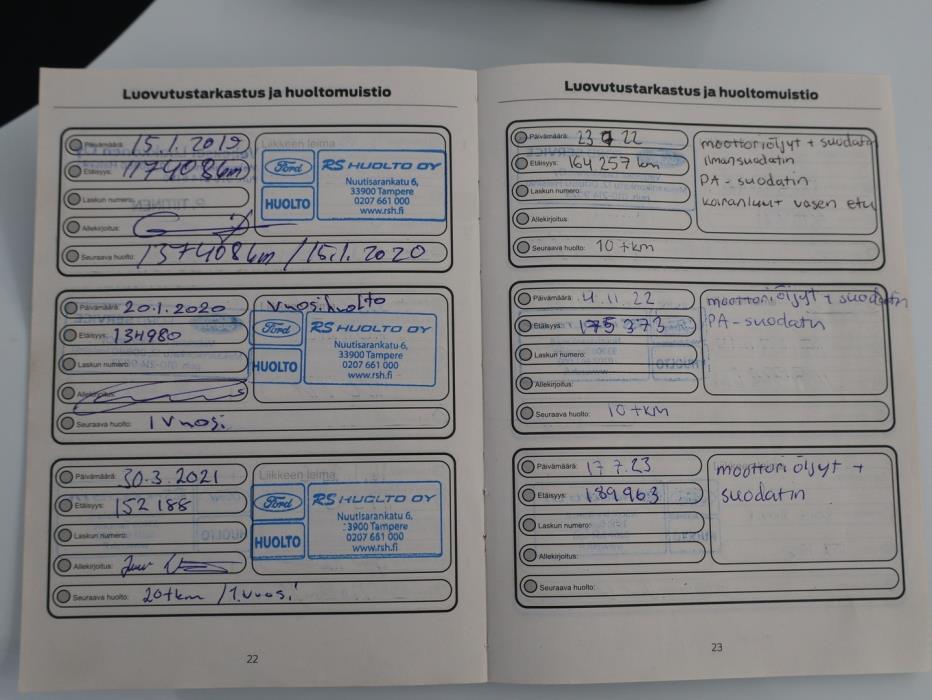 Luovutustarkastus ja huoltomuistio
Päivämäärä: 15.1.2019
Etäisyys: 117408 km
Laskun numero:
Allekirjoitus:
Seuraava huolto: 137408km / 15.1.2020
Liikkeen leima
Ford
HUOLTO
RS HUOLTO OY
Nuutisarankatu 6,
33900 Tampere
0207 661 000
www.rsh.fi
Päivämäärä: 20.1.2020
Etäisyys: 134980
Laskun numero:
Allekirjoitus:
Seuraava huolto: 1 vuosi
Vuosihuolto
Ford
HUOLTO
RS HUOLTO OY
Nuutisarankatu 6,
33900 Tampere
0207 661 000
www.rsh.fi
Päivämäärä: 30.3.2021
Etäisyys: 152188
Laskun numero:
Allekirjoitus:
Seuraava huolto: 20tkm / 1.vuosi
Liikkeen leima
Ford
HUOLTO
RS HUOLTO OY
Nuutisarankatu 6,
33900 Tampere
0207 661 000
www.rsh.fi
22
Luovutustarkastus ja huoltomuistio
Päivämäärä: 23 7 22
Etäisyys: 164 257 km
Laskun numero:
Allekirjoitus:
Seuraava huolto: 10 tkm
moottoriöljyt + suodatin
ilmansuodatin
PA - suodatin
koiranluut vasen etu
Päivämäärä: 4.11.22
Etäisyys: 175 373
Laskun numero:
Allekirjoitus:
Seuraava huolto: 10 tKM
moottoriöljyt + suodatin
PA - suodatin
Päivämäärä: 17 7.23
Etäisyys: 189963
Laskun numero:
Allekirjoitus:
Seuraava huolto:
moottoriöljyt +
suodatin
23